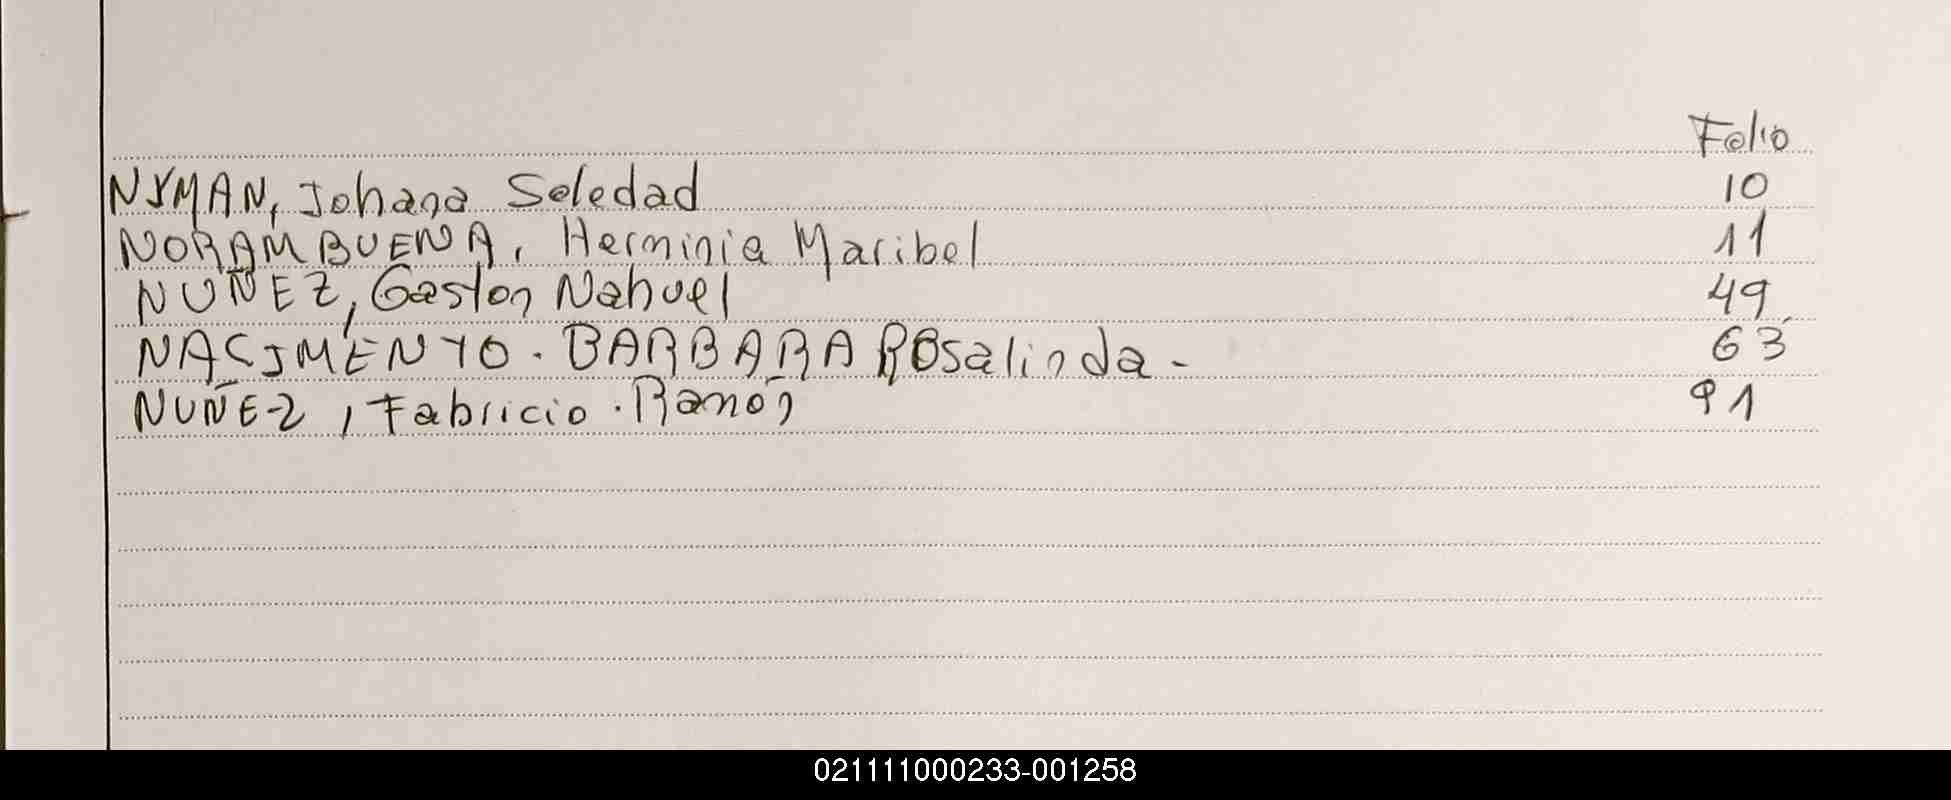 Folio
NYMAN, Johana Soledad 10
NORAMBUENA, Herminia Maribel 11
NUÑEZ, Gaston Nahuel 49
NACIMENTO. BARBARA ROsalinda - 63
NUÑEZ, Fabricio. Ramón 91
021111000233-001258